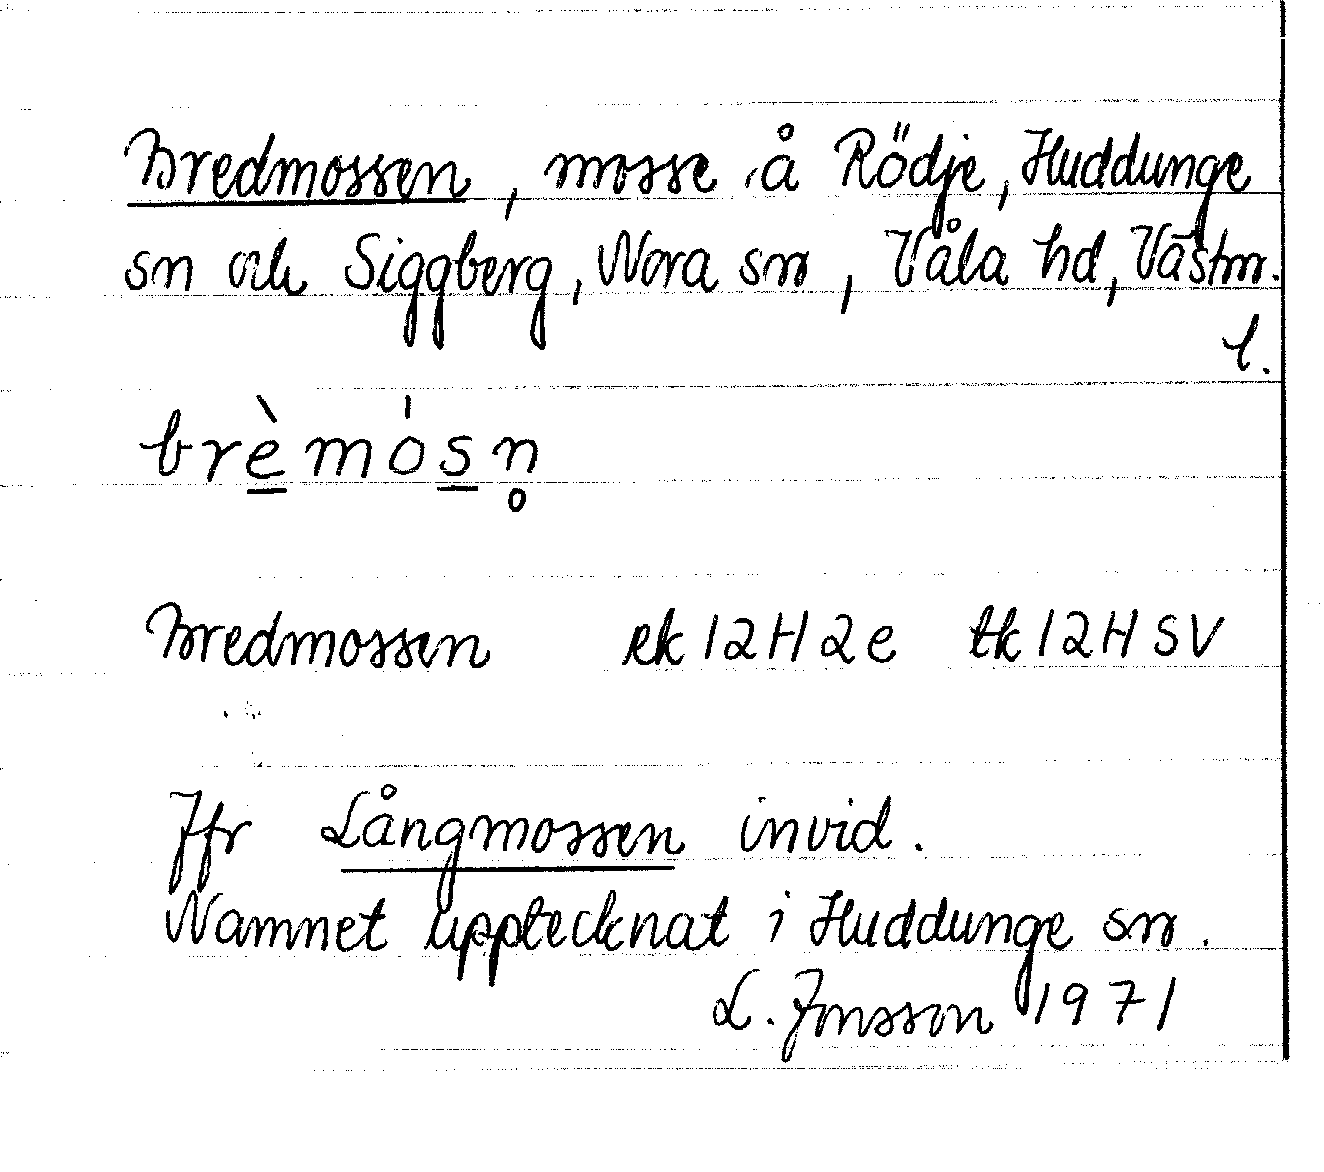 Bredmossen, mosse å Rödje, Huddunge
sn och Siggberg, Nora sn, Våla hd, Västm.
l.
brè̲mós̲n̥
Bredmossen ek 12H2e tk 12H SV
Jfr Långmossen invid.
Namnet upptecknat i Huddunge sn.
L. Jonsson 1971